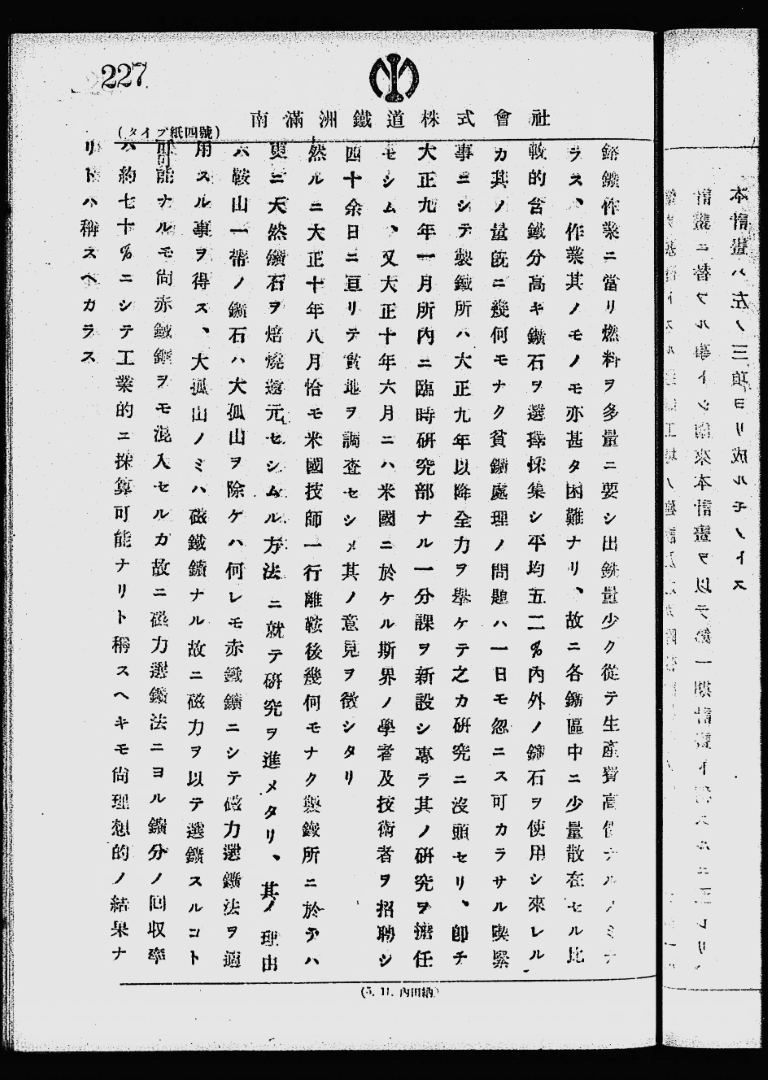 本計畫ハ左ノ三項ヨリ成ルモノトス
計畫ニ替フル事トシ 來本計畫ヲ以テ第一期計畫ト スルニ至レリ、
227
南滿洲鐵道株式會社
(タイプ紙四號)
鎔鑛作業ニ當リ燃料ヲ多量ニ要シ出銑量少ク從テ生產費高價ナルノミナ
ラス、作業其ノモノモ亦甚タ困難ナリ、故ニ各鑛區中ニ少量散在セル比
較的含鐵分高キ鑛石ヲ選擇採集シ平均五二%內外ノ鑛石ヲ使用シ來レル
カ其ノ量旣ニ幾何モナク貧鑛處理ノ問題ハ一日モ忽ニス可カラサル喫緊
事ニシテ製鐵所ハ大正九年以降全力ヲ擧ケテ之カ硏究ニ沒頭セリ、卽チ
大正九年一月所內ニ臨時硏究部ナル一分課ヲ新設シ專ラ其ノ硏究ヲ擔任
セシム、又大正十年六月ニハ米國ニ於ケル斯界ノ學者及技術者ヲ招聘シ
四十余日ニ亘リテ實地ヲ調査セシメ其ノ意見ヲ徵シタリ
然ルニ大正十年八月恰モ米國技師一行離鞍後幾何モナク製鐵所ニ於テハ
更ニ天然鑛石ヲ焙燒還元セシムル方法ニ就テ硏究ヲ進メタリ、其ノ理由
ハ鞍山一帶ノ鑛石ハ大孤山ヲ除ケハ何レモ赤鐵鑛ニシテ磁力選鑛法ヲ適
用スル事ヲ得ス、大孤山ノミハ磁鐵鑛ナル故ニ磁力ヲ以テ選鑛スルコト
可能ナルモ尙赤鐵鑛ヲモ混入セルカ故ニ磁力選鑛法ニヨル鑛分ノ回收率
ハ約七十%ニシテ工業的ニ採算可能ナリト稱スヘキモ尙理想的ノ結果ナ
リトハ稱スヘカラス
(5. 11. 內田納)